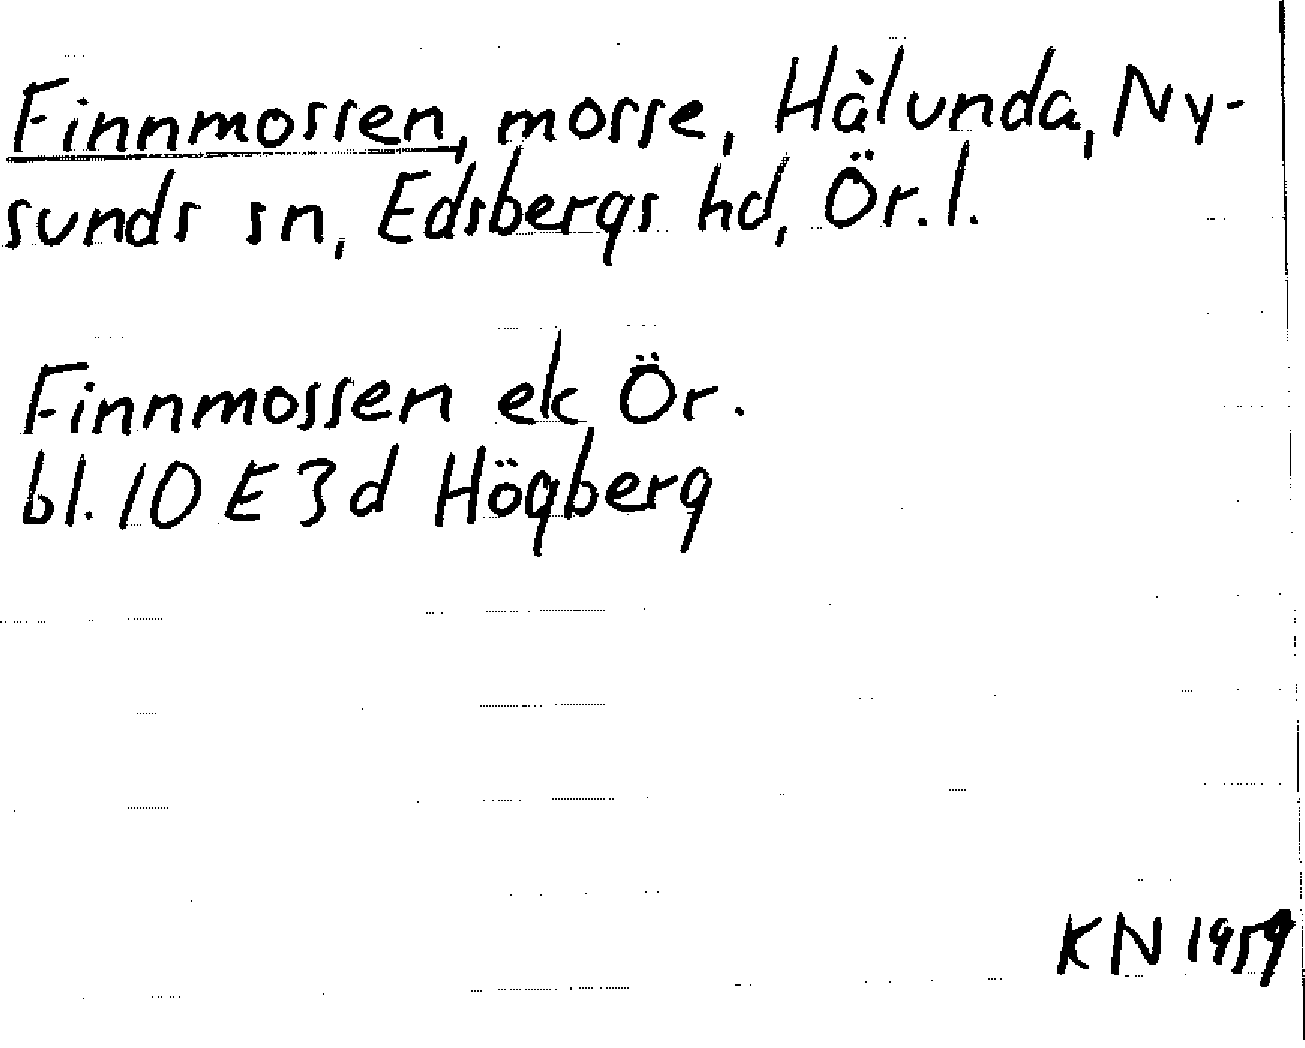 Finnmossen, mosse, Hålunda, Ny-
sunds sn, Edsbergs hd, Ör. l.
Finnmossen ek Ör.
bl. 10 E 3d Högberg
KN 1959